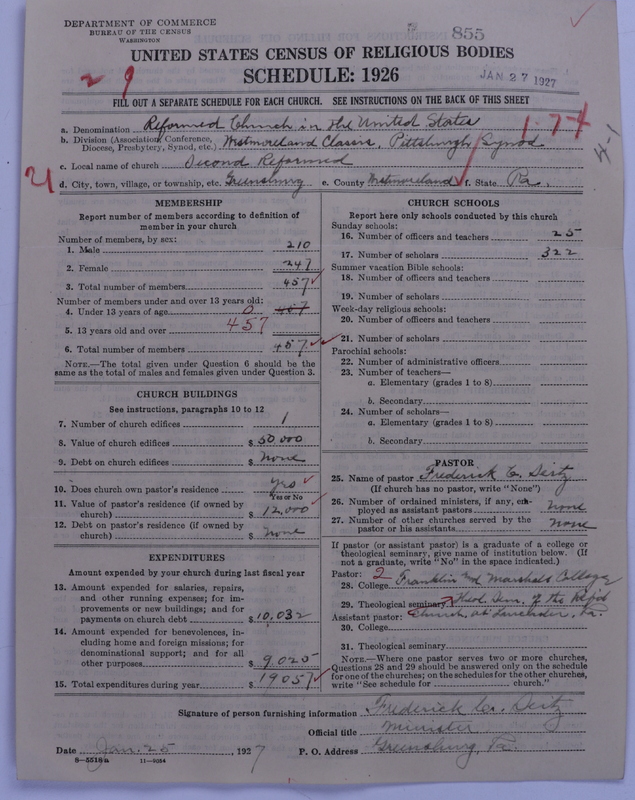 DEPARTMENT OF COMMERCE
BUREAU OF THE CENSUS
WASHINGTON
855
UNITED STATES CENSUS OF RELIGIOUS BODIES
SCHEDULE: 1926
JAN 27 1927
29
FILL OUT A SEPARATE SCHEDULE FOR EACH CHURCH. SEE INSTRUCTIONS ON THE BACK OF THIS SHEET
a. Denomination Reformed Church in the United States
1-74
b. Division (Association, Conference, Diocese, Presbytery, Synod, etc.) Westmoreland Classis, Pittsburgh Synod
4-1
c. Local name of church Second Reformed
21
d. City, town, village, or township, etc. Greensburg e. County Westmoreland f. State Pa.
MEMBERSHIP
Report number of members according to definition of
member in your church
Number of members, by sex:
1. Male 210
2. Female 247
3. Total number of members 457
Number of members under and over 13 years old:
4. Under 13 years of age 0 457
5. 13 years old and over 457
6. Total number of members 457
NOTE.—The total given under Question 6 should be
same as the total of males and females given under Question 3.
CHURCH BUILDINGS
See instructions, paragraphs 10 to 12
7. Number of church edifices 1
8. Value of church edifices $ 50,000
9. Debt on church edifices $ None
10. Does church own pastor's residence Yes
Yes or No
11. Value of pastor's residence (if owned by
church) $ 12,000
12. Debt on pastor's residence (if owned by
church) $ None
EXPENDITURES
Amount expended by your church during last fiscal year
13. Amount expended for salaries, repairs,
and other running expenses; for im-
provements or new buildings; and for
payments on church debt $ 10,032
14. Amount expended for benevolences, in-
cluding home and foreign missions; for
denominational support; and for all
other purposes $ 9,025
15. Total expenditures during year $ 19057
CHURCH SCHOOLS
Report here only schools conducted by this church
Sunday schools:
16. Number of officers and teachers 25
17. Number of scholars 322
Summer vacation Bible schools:
18. Number of officers and teachers
19. Number of scholars
Week-day religious schools:
20. Number of officers and teachers
21. Number of scholars
Parochial schools:
22. Number of administrative officers
23. Number of teachers—
a. Elementary (grades 1 to 8)
b. Secondary
24. Number of scholars—
a. Elementary (grades 1 to 8)
b. Secondary
PASTOR
25. Name of pastor Frederick C.
(If church has no pastor, write "None")
26. Number of ordained ministers, if any, em-
ployed as assistant pastors none
27. Number of other churches served by the
pastor or his assistants none
If pastor (or assistant pastor) is a graduate of a college or
theological seminary, give name of institution below. (If
not a graduate, write "No" in the space indicated.)
Pastor: 2
28. College Franklin and Marshall College
29. Theological seminary Theol. Sem. of the Refod
Assistant pastor: Church at Lancaster, Pa.
30. College
31. Theological seminary
NOTE.—Where one pastor serves two or more churches,
Questions 28 and 29 should be answered only on the schedule
for one of the churches; on the schedules for the other churches,
write "See schedule for church."
Signature of person furnishing information Frederick C.
Official title Minister
Date Jan. 25, 1927 P. O. Address Greensburg, Pa.
8-5518a 11-9084